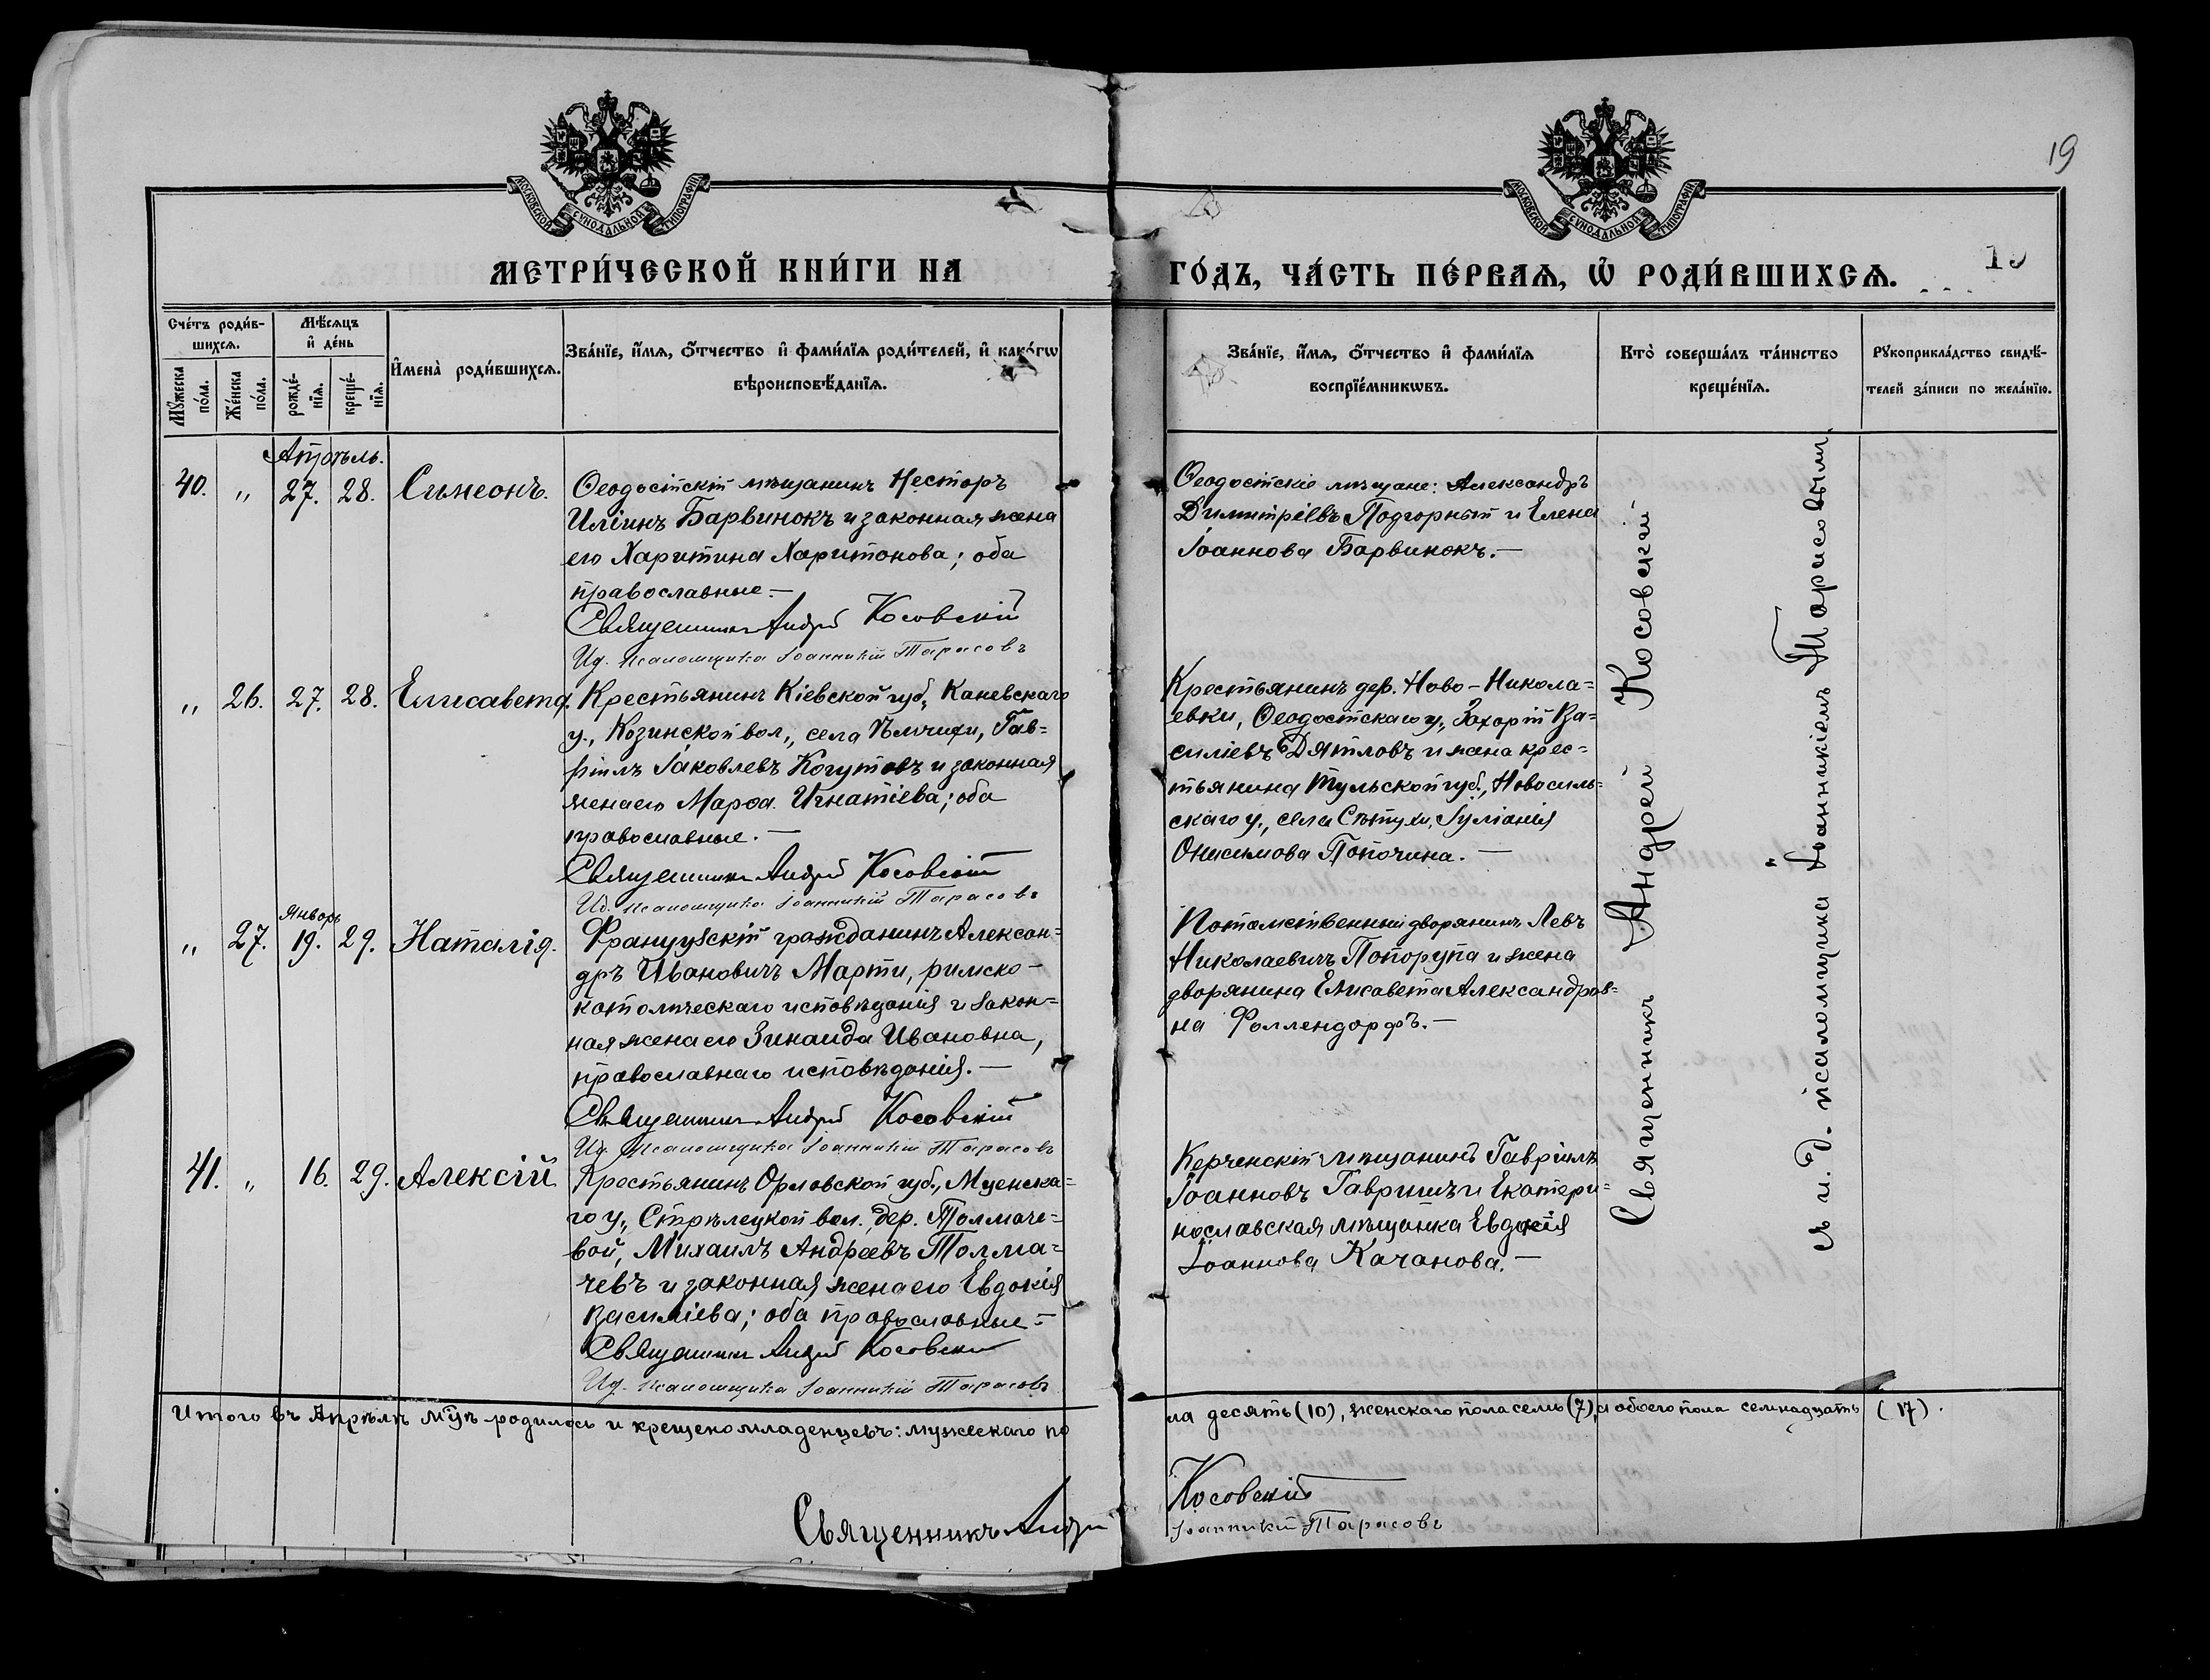 19
МОСКОВСКОЙ СУНОДАЛЬНОЙ ТИПОГРАФІИ
МОСКОВСКОЙ СУНОДАЛЬНОЙ ТИПОГРАФІИ
МЕТРИ́ЧЕСКОЙ КНИ́ГИ НА
ГО́ДЪ, ЧА́СТЬ ПЕ́РВАѦ, Ѡ҆ РОДИ́ВШИХСѦ.
Сче́тъ роди́в-
шихсѧ.
Мѣ́сѧцъ
и҆ де́нь
Мꙋ́жеска
по́ла.
Же́нска
по́ла.
рожде́-
нїѧ.
креще́-
нїѧ.
И҆мена̀ роди́вшихсѧ.
Зва́нїе, и҆́мѧ, ѻ҆́тчество и҆ фами́лїѧ роди́телей, и҆ како́гѡ
вѣроисповѣ́данїѧ.
Зва́нїе, и҆́мѧ, ѻ҆́тчество и҆ фами́лїѧ
воспрїе́мникѡвъ.
Кто̀ соверша́лъ та́инство
креще́нїѧ.
Рꙋкоприкла́дство свидѣ́-
телей за́писи по жела́нїю.
Апрѣль.
40. " 27. 28. Симеонъ.
Ѳеодосійскій мѣщанинъ Несторъ
Иліинъ Барвинокъ и законная жена
его Харитина Харитонова; оба
православные.—
Священникъ Андрей Косовскій
И.д. псаломщика Іоанникій Тарасовъ
Ѳеодосійскіе мѣщане: Александръ
Димитріевъ Подгорный и Елена
Іоаннова Барвинокъ.—
" 26. 27. 28. Елисавета.
Крестьянинъ Кіевской губ., Каневскаго
у., Козинской вол., села Пѣмчихи, Гав-
ріилъ Іаковлевъ Когутовъ и законная
жена его Марѳа Игнатіева; оба
православные.—
Священникъ Андрей Косовскій
И.д. псаломщика Іоанникій Тарасовъ
Крестьянинъ дер. Ново-Никола=
евки, Ѳеодосійскаго у., Захарій Ва=
силіевъ Дятловъ и жена крес=
тьянина Тульской губ., Новосиль=
скаго у., села Ситухи, Іуліанія
Онисимова Попочина.—
" 27. Январь 19. 29. Наталія.
Французскій гражданинъ Алексан=
дръ Ивановичъ Марти, римско-
католическаго исповѣданія и закон=
ная жена его Зинаида Ивановна,
православнаго исповѣданія.—
Священникъ Андрей Косовскій
И.д. псаломщика Іоанникій Тарасовъ
Потомственный дворянинъ Левъ
Николаевичъ Попорупа и жена
дворянина Елисавета Александров=
на Фоллендорфъ.—
41. " 16. 29. Алексій
Крестьянинъ Орловской губ., Мценска=
го у., Стрѣлецкой вол. дер. Толмаче=
вой, Михаилъ Андреевъ Толма=
чевъ и законная жена его Евдокія
Василіева; оба православные—
Священникъ Андрей Косовскій
И.д. псаломщика Іоанникій Тарасовъ
Керченскій мѣщанинъ Гавріилъ
Іоанновъ Гавришъ и Екатери=
нославская мѣщанка Евдокія
Іоаннова Качанова.—
Священникъ Андрей Косовскій
съ и.д. псаломщика Іоанникіемъ Тарасовымъ.
Итого въ Апрѣлѣ м҃цѣ родилось и крещено младенцевъ: мужескаго по
ла десять (10), женскаго пола семь (7), а обоего пола семнадцать (17).
Священникъ Андрей
Косовскій
Іоанникій Тарасовъ